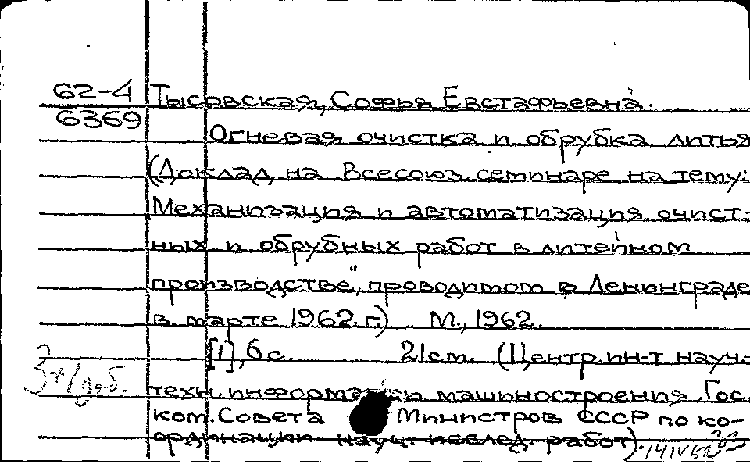 62-4
6369
Тысовская, Софья Евстафьевна.
Огневая очистка и обрубка литья
(Доклад на Всесоюз. семинаре на тему:
Механизация и автоматизация очист-
ных и обрубных работ в литейном
производстве", проводимом в Ленинграде
в марте 1962 г.) М., 1962.
[1], 6 с. 21 см. (Центр. ин-т науч.-
техн. информации машиностроения. Гос.
ком. Совета Министров СССР по ко-
ординации науч. исслед. работ)